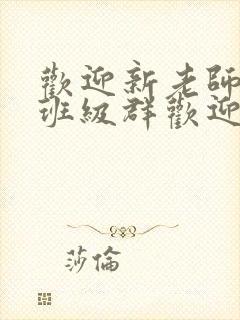 歡迎新老師
班級群歡迎
莎倫